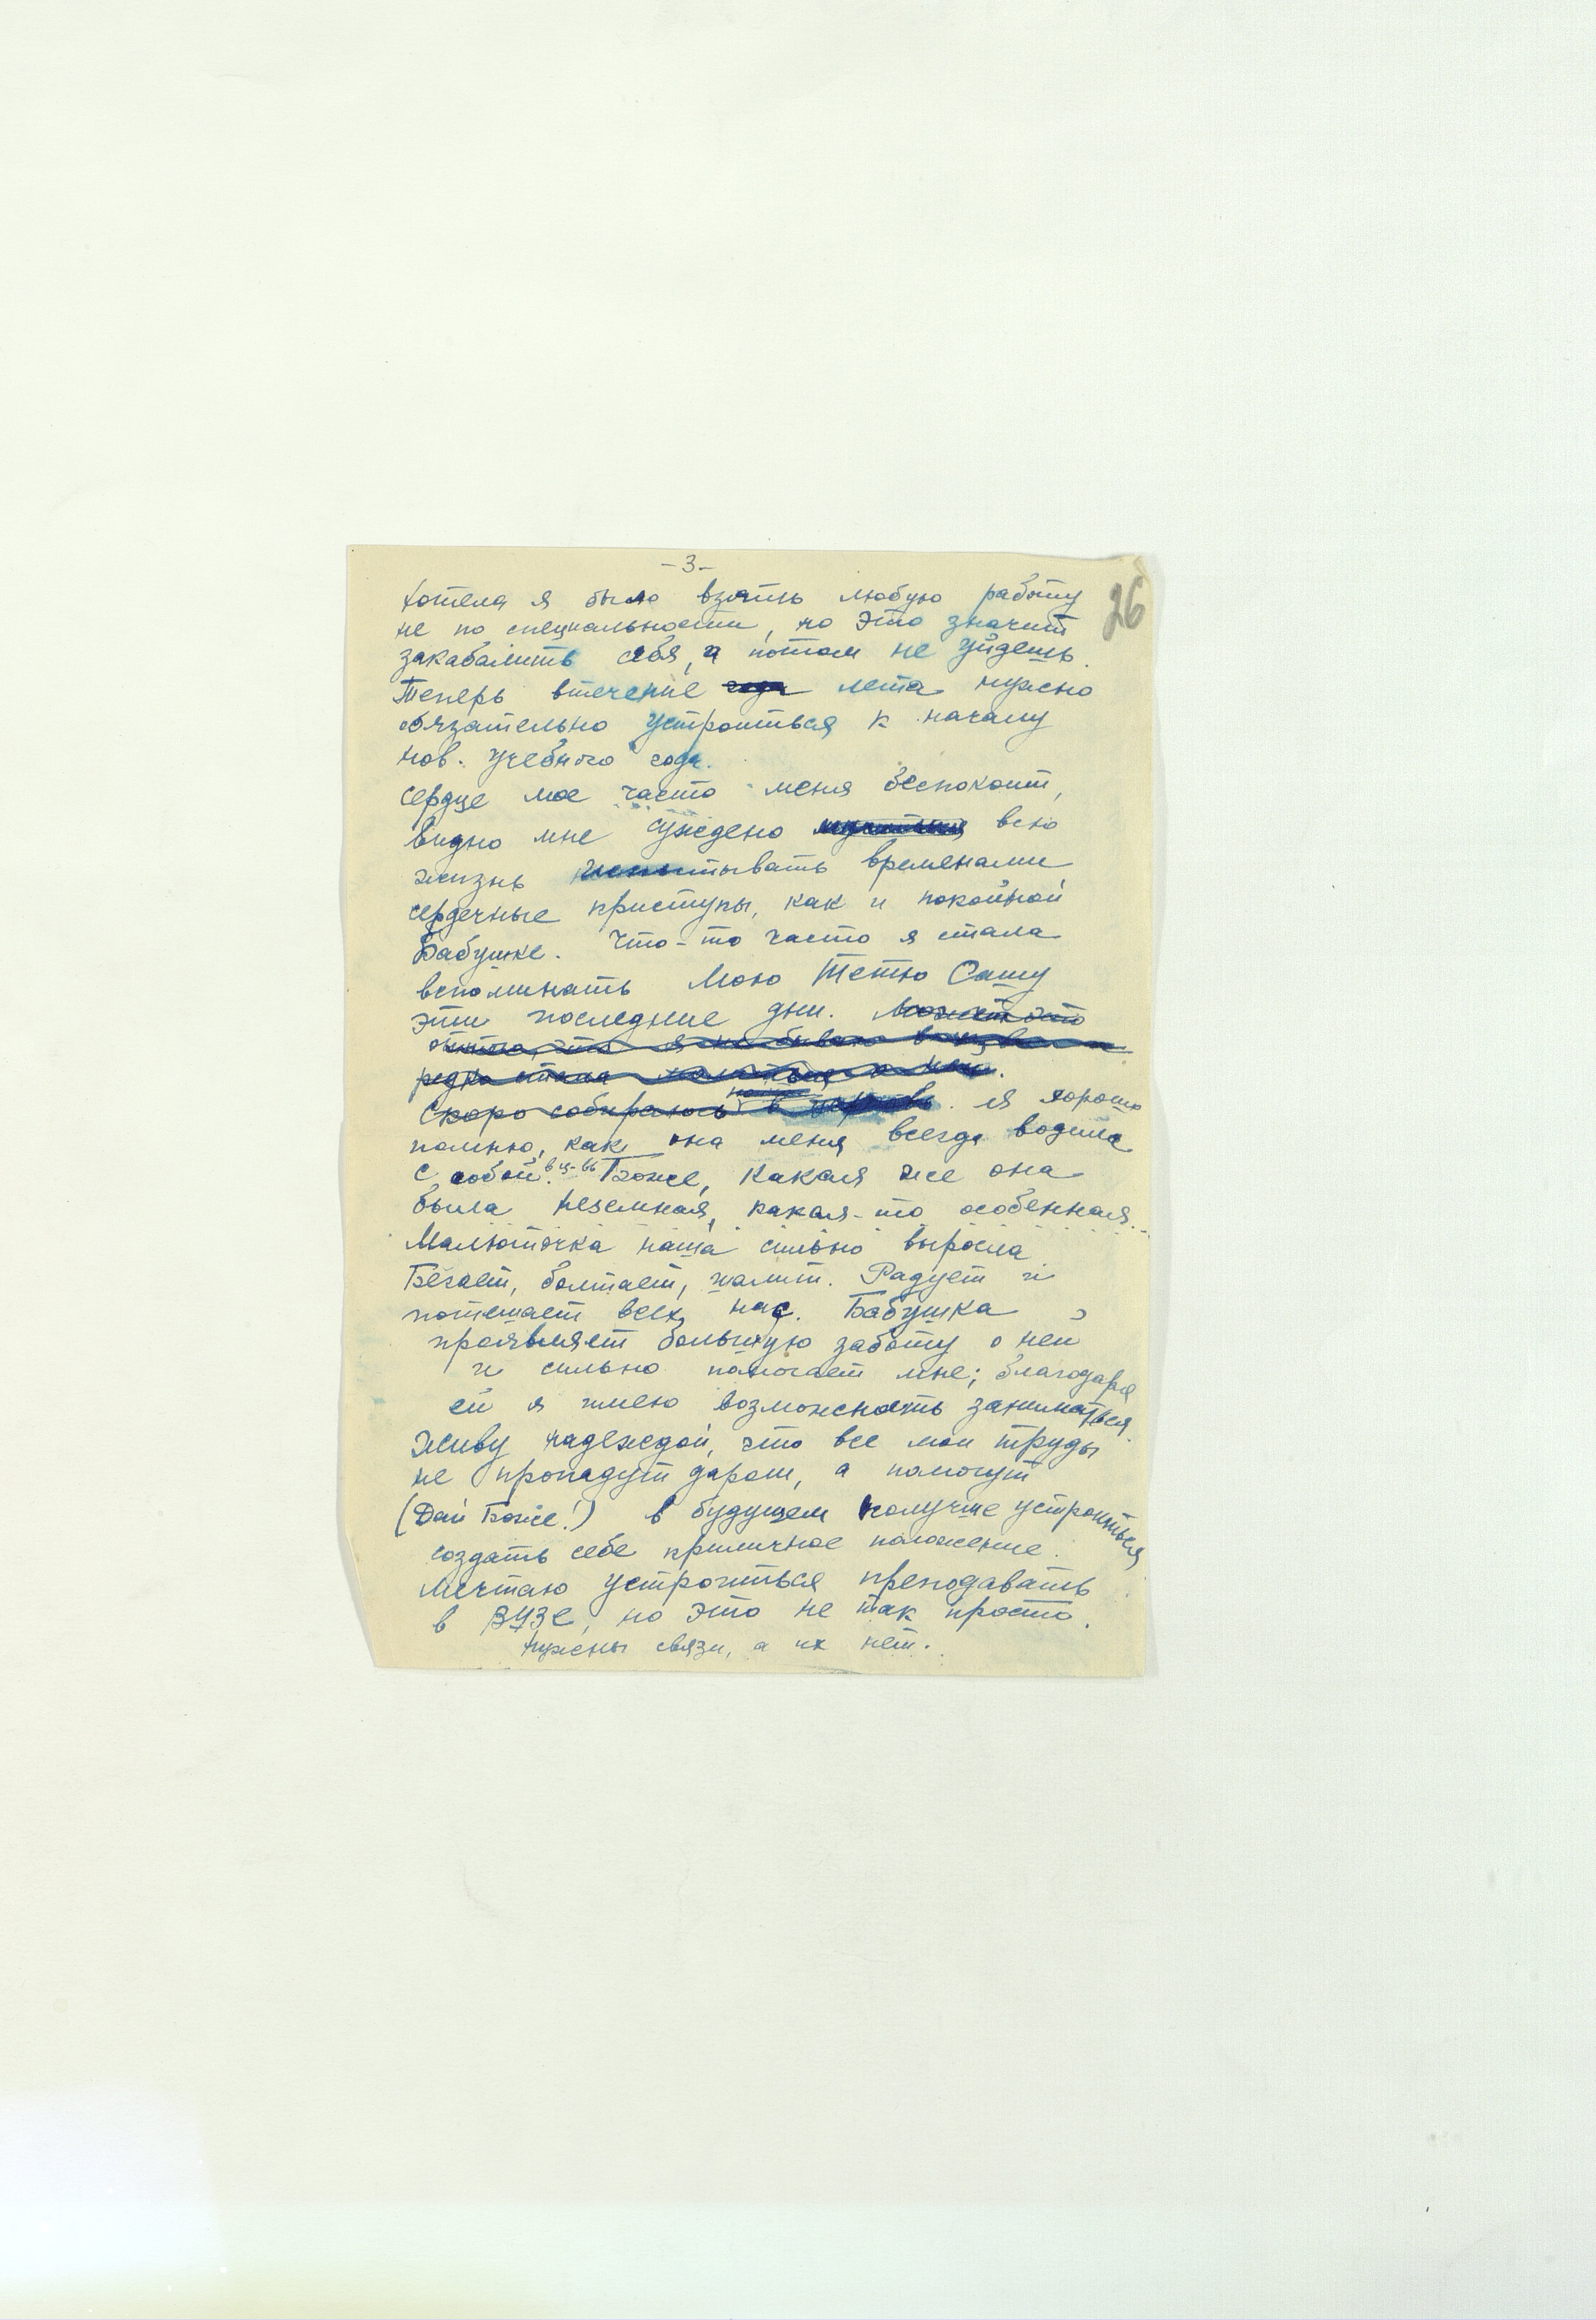 -3-
26
Хотела я было взять любую работу
не по специальности, но это значит
закабалить себя, а потом не уйдешь.
Теперь втечение года лета нужно
обязательно устроиться к началу
нов. учебного года.
Сердце мое часто меня беспокоит,
видно мне суждено мучиться всю
жизнь испытывать временами
сердечные приступы, как и покойной
Бабушке. Что-то часто я стала
вспоминать Мою Тетю Сашу
эти последние дни. Может это
оттого, что я не бываю в
редко стала молиться о ней.
Скоро собираюсь в церковь. Я хорошо
помню, как она меня всегда водила
с собой в ц-вь. Боже, какая же она
была неземная, какая-то особенная...
Малюточка наша сильно выросла
Бегает, болтает, шалит. Радует и
потешает всех нас. Бабушка
проявляет большую заботу о ней
и сильно помогает мне; благодаря
ей я имею возможность заниматься.
Живу надеждой, что все мои труды
не пропадут даром, а помогут
(Дай Боже!) в будущем получше устроиться
создать себе приличное положение.
Мечтаю устроиться преподавать
в ВУЗе, но это не так просто.
Нужны связи, а их нет.